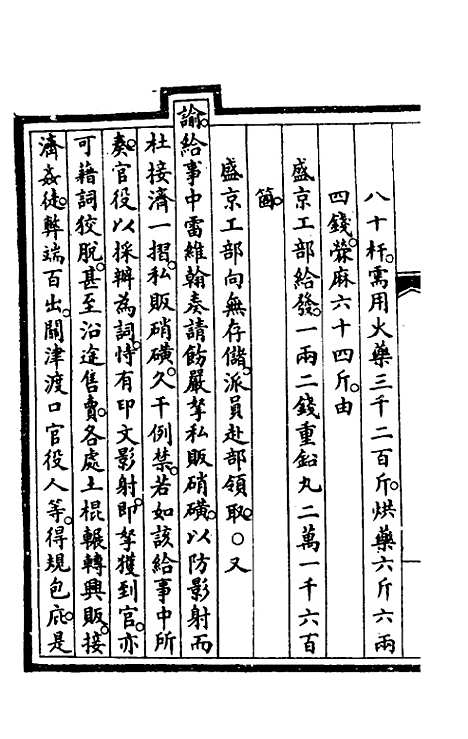 八十杆。需用火藥三千二百斤。烘藥六斤六兩
四錢。檾麻六十四斤。由
盛京工部給發。一兩二錢重鉛丸二萬一千六百
箇。
盛京工部向無存儲。派員赴部領取。○又
諭給事中雷維翰奏請飭嚴拏私販硝磺。以防影射而
杜接濟一摺。私販硝磺。久干例禁。若如該給事中所
奏。官役以採辦為詞。恃有印文影射。即拏獲到官。亦
可藉詞狡脫。甚至沿途售賣。各處土棍。輾轉興販。接
濟姦徒。弊端百出。關津渡口官役人等。得規包庇。是